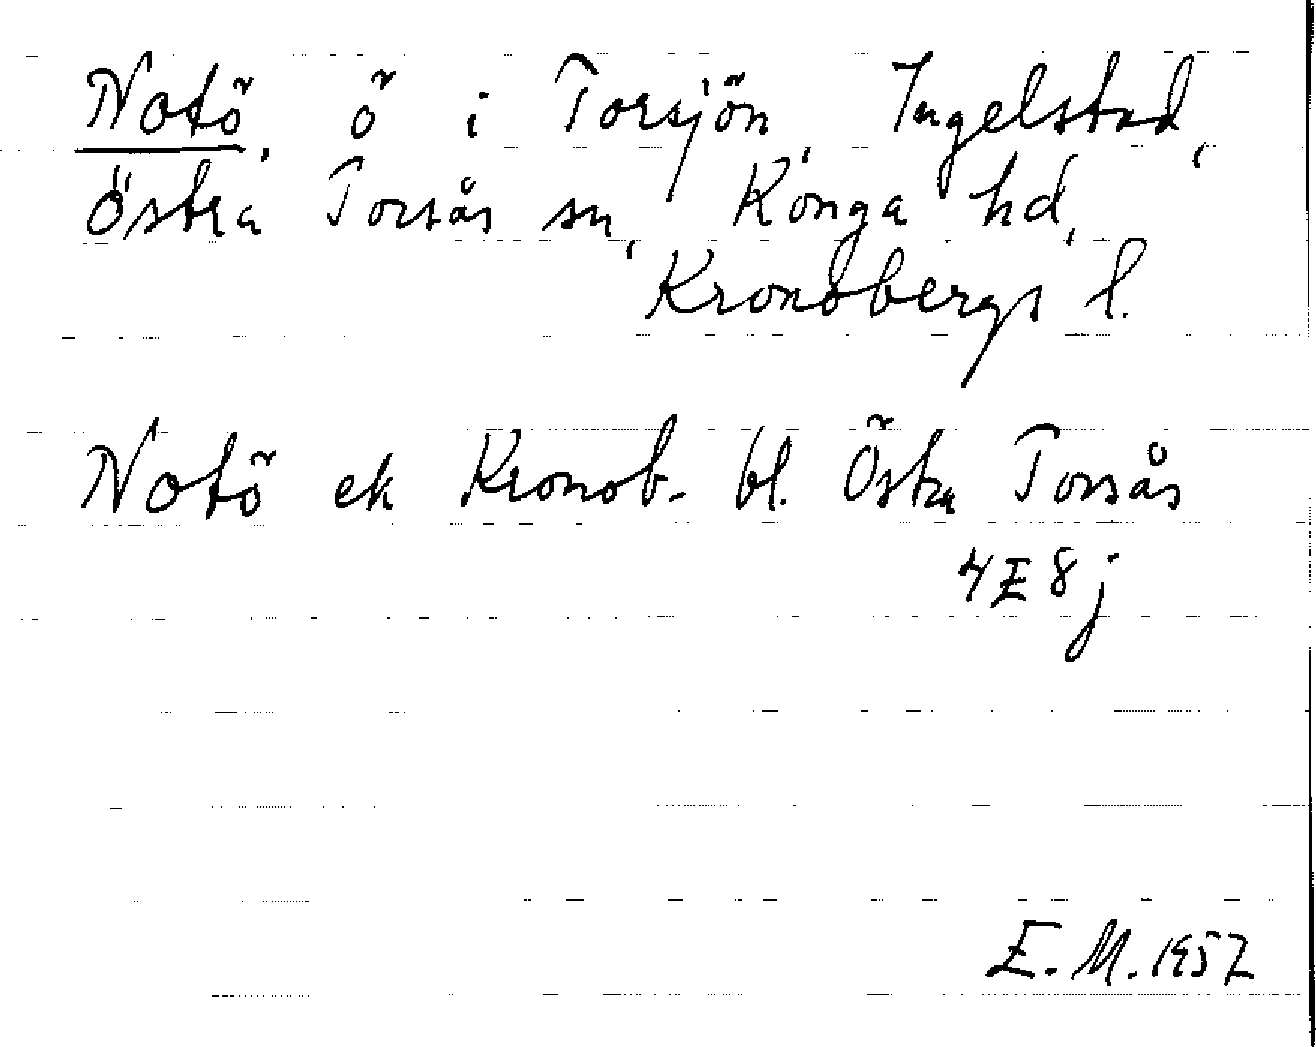 Notö, ö i Torsjön, Ingelstad,
Östra Torsås sn, Konga hd,
Kronobergs l.
Notö ek Kronob. bl. Östra Torsås
4E8j
E. M. 1957